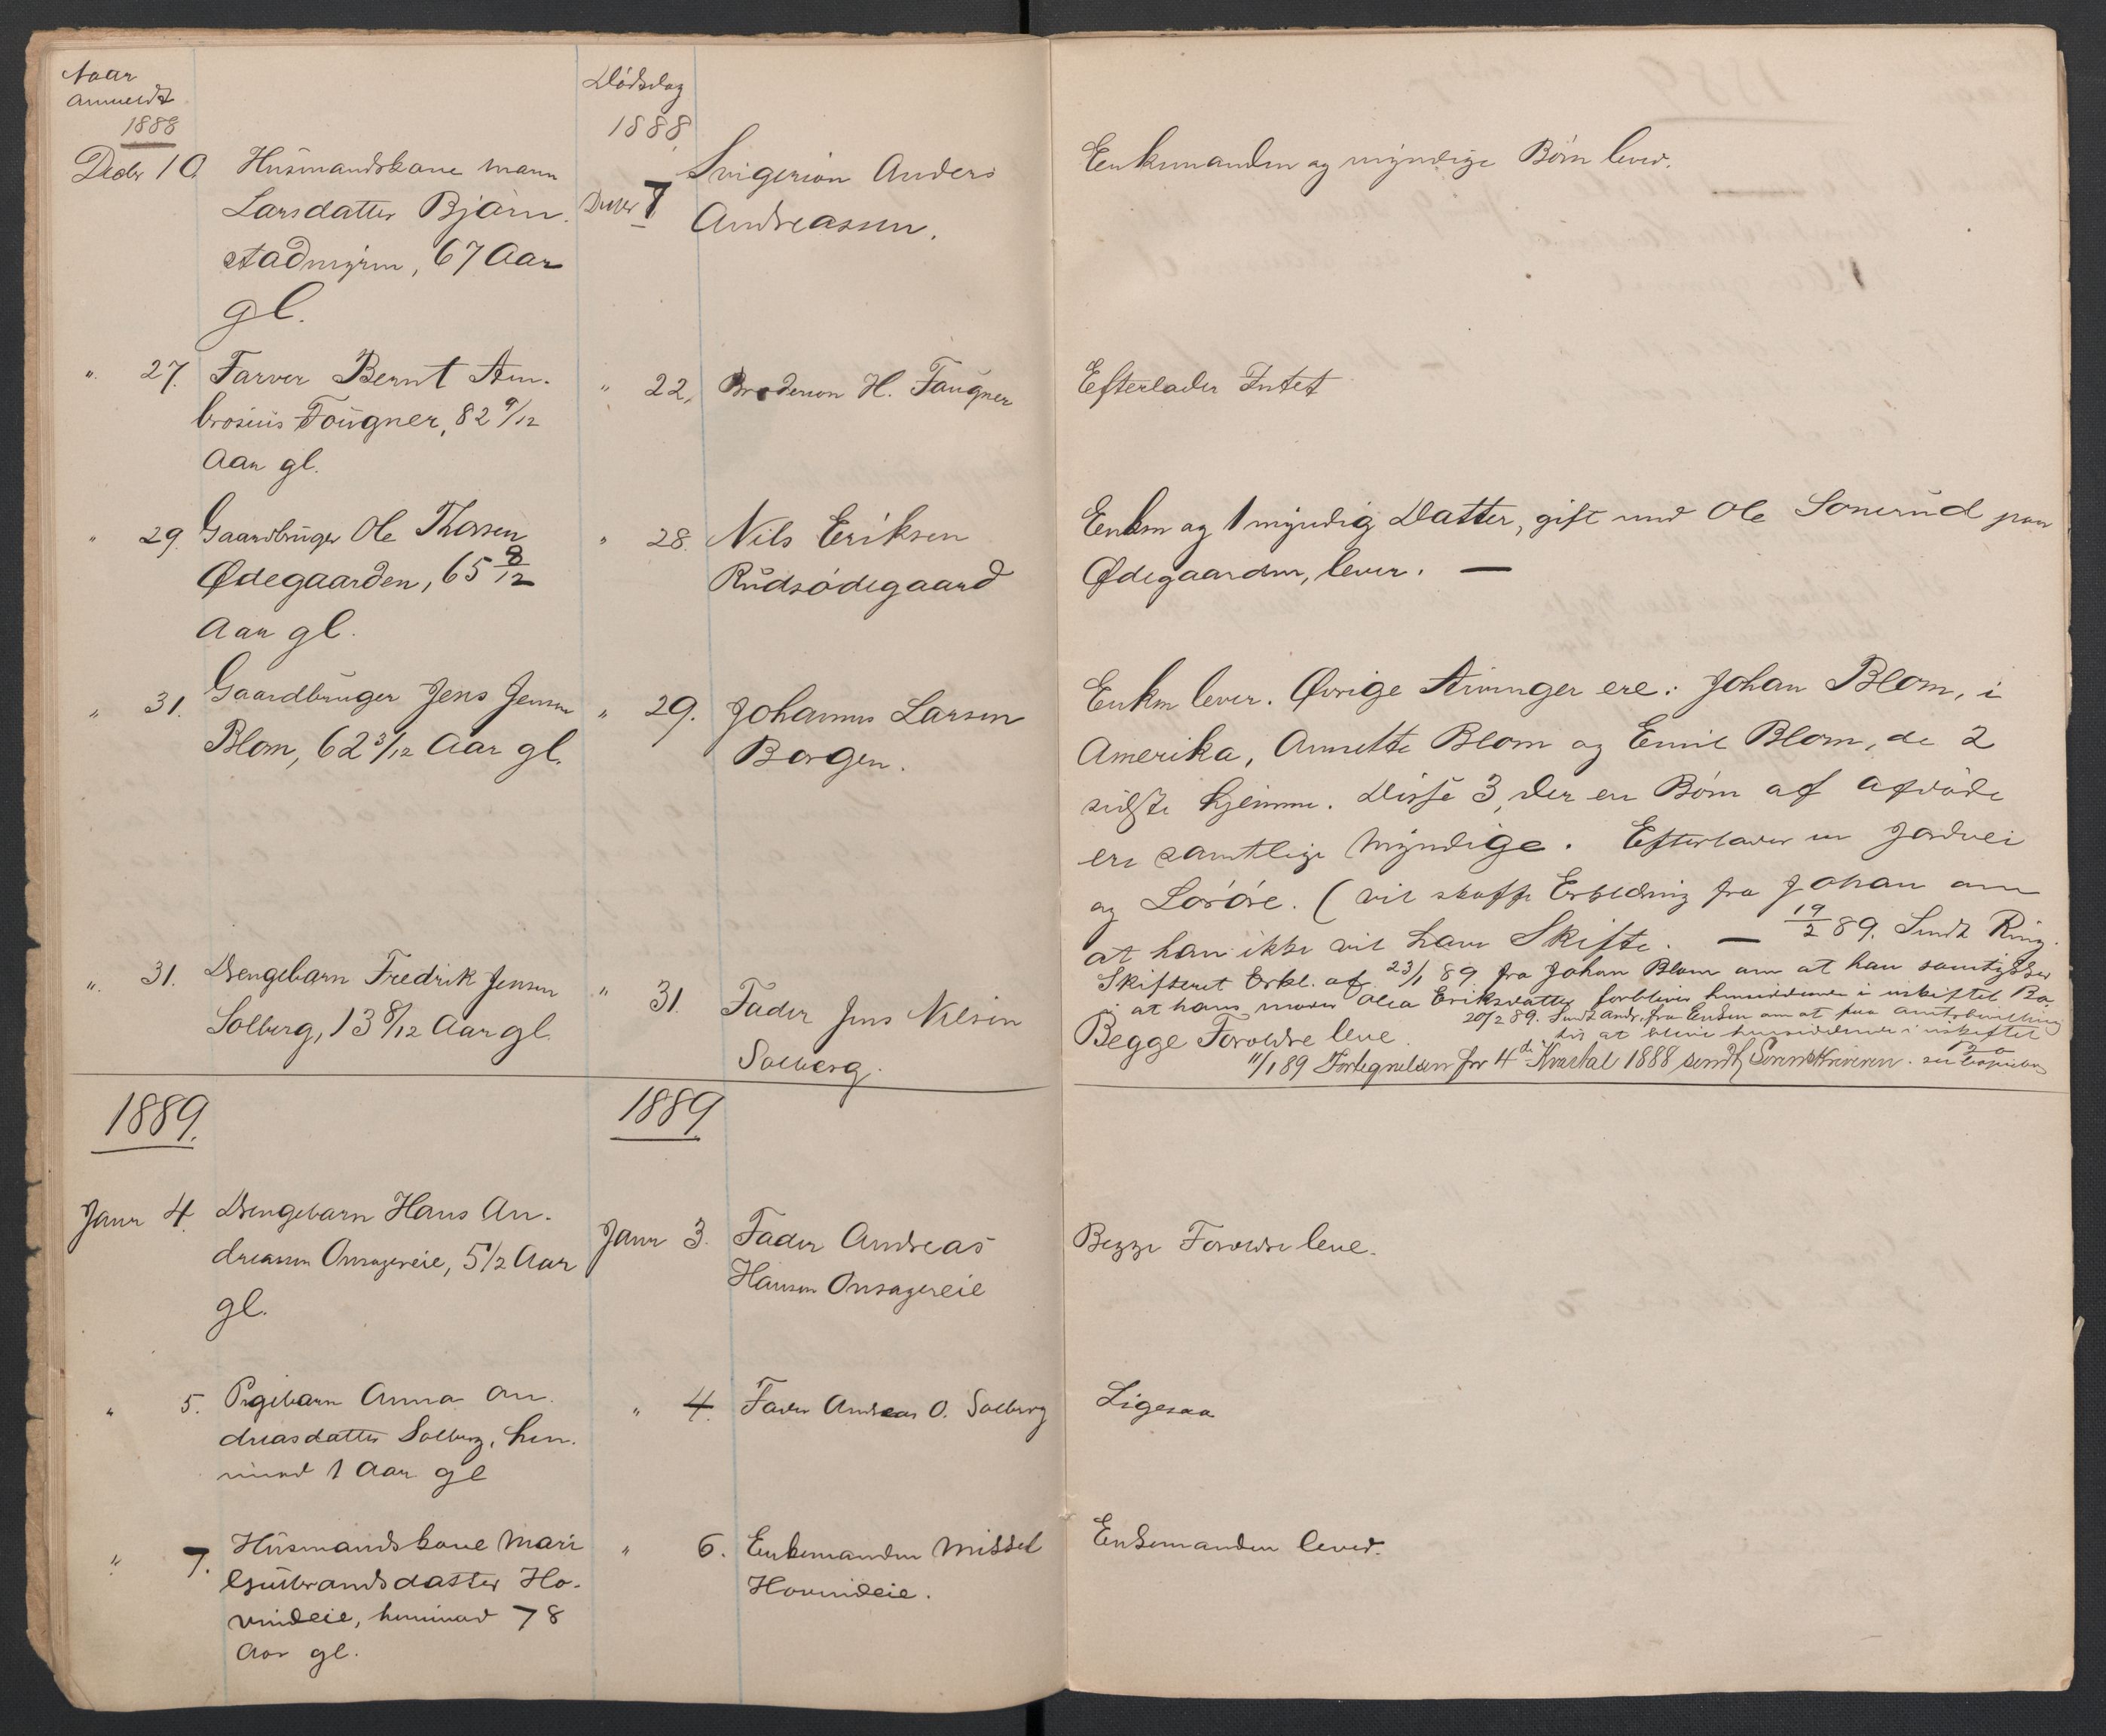 Naar
Anmeldt
1888
Dødsdag
1888
Decbr 10. Husmandskone Maren
Larsdatter Bjørn-
stadmyren, 67 Aar
gl.
Decbr 7
Svigersøn Anders
Andreassen.
Enkemanden og myndige Børn lever.
" 27. Farver Bernt Am-
brosius Fougner, 82 9/12
Aar gl.
" 22. Brodersøn H. Faugner
Efterlader Intet
" 29. Gaardbruger Ole Thorsen
Ødegaarden, 65 8/12
Aar gl.
" 28. Nils Eriksen
Rudsødegaard
Enken og 1 myndig Datter, gift med Ole Sonerud paa
Ødegaarden, lever. —
" 31. Gaardbruger Jens Jensen
Blom, 62 3/12 Aar gl.
" 29. Johannes Larsen
Borgen.
Enken lever. Øvrige Arvinger ere: Johan Blom, i
Amerika, Annette Blom og Emil Blom, de 2
sidste hjemme. Disse 3, der er Børn af afdøde
ere samtlige Myndige. Efterlader en Jordvei
og Losøre. (vil skaffe Erklæring fra Johan om
at han ikke vil have Skifte. — 19/2 89. Sendt Ring.
Skifteret Erkl. af 23/1 89 fra Johan Blom om at han samtykker
i at hans moder Olea Eriksdatter forbliver hensiddende i uskiftet Bo
20/2 89. Sendt Andr. fra Enken om at faa amtsbevilling
til at blive hensiddende i uskiftet
Bo
" 31. Drengebarn Fredrik Jensen
Solberg, 13 8/12 Aar gl.
" 31. Fader Jens Nilsen
Solberg.
Begge Forældre leve.
11/1 89 Fortegnelsen for 4de Kvartal 1888 sendt Sorenskriveren.
1889.
1889
Janr 4. Drengebarn Hans An-
dreassen Onsagereie, 5 1/2 Aar
gl.
Janr 3. Fader Andreas
Hansen Onsagereie
Begge Forældre leve.
" 5. Pigebarn Anna An-
dreasdatter Solberg, hen-
imod 1 Aar gl
" 4. Fader Andreas O. Solberg
Ligesaa
" 7. Husmandskone Mari
Gulbrandsdatter Ho-
vindeie, henimod 78
Aar gl.
" 6. Enkemanden Mikkel
Hovindeie.
Enkemanden lever.